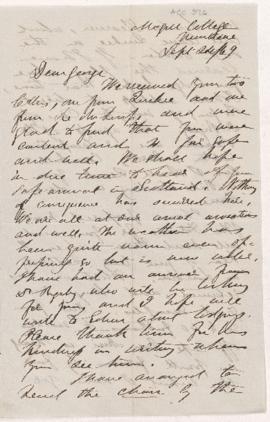 ACC 976
McGill College
Sept 24/69
Dear George
We received your two
letters, one from Quebec and one
from and were
glad to find that you were
content and so far safe
and well. We shall hope
in due time to hear of your
safe arrival in Scotland. Nothing
of consequence has occurred here.
We are all at our usual
and well. The weather has
been quite warm even
but is now cooler.
I have had an answer from
Dr who will be looking
for you, and I hope will
write to about lodgings.
Please thank him for his
kindness in writing when
you see him.
I have arranged to
send the chair by the